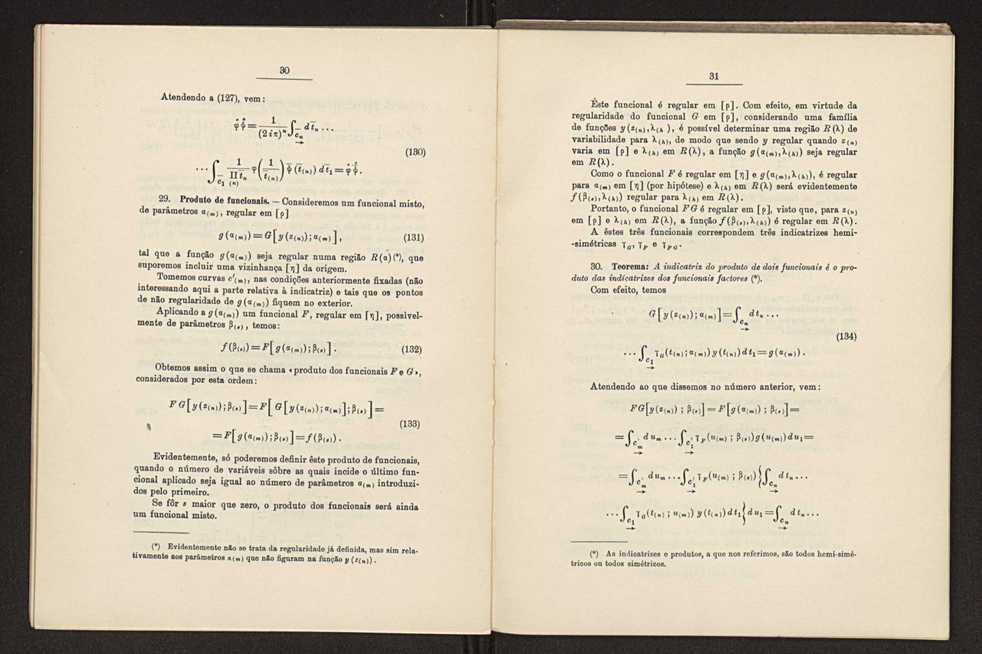 30
Atendendo a (127), vem:
(130)
29. Produto de funcionais. — Consideremos um funcional misto,
de parâmetros α₍ₘ₎, regular em [ρ]
g(α₍ₘ₎) = G[y(z₍ₙ₎); α₍ₘ₎], (131)
tal que a função g(α₍ₘ₎) seja regular numa região R(α)(*), que
suporemos incluir uma vizinhança [η] da origem.
Tomemos curvas c'₍ₘ₎, nas condições anteriormente fixadas (não
interessando aqui a parte relativa à indicatriz) e tais que os pontos
de não regularidade de g(α₍ₘ₎) fiquem no exterior.
Aplicando a g(α₍ₘ₎) um funcional F, regular em [η], possivel-
mente de parâmetros β₍ₛ₎, temos:
f(β₍ₛ₎) = F[g(α₍ₘ₎); β₍ₛ₎]. (132)
Obtemos assim o que se chama «produto dos funcionais F e G»,
considerados por esta ordem:
FG[y(z₍ₙ₎); β₍ₛ₎] = F[G[y(z₍ₙ₎); α₍ₘ₎]; β₍ₛ₎] =
(133)
= F[g(α₍ₘ₎); β₍ₛ₎] = f(β₍ₛ₎).
Evidentemente, só poderemos definir êste produto de funcionais,
quando o número de variáveis sôbre as quais incide o último fun-
cional aplicado seja igual ao número de parâmetros α₍ₘ₎ introduzi-
dos pelo primeiro.
Se fôr s maior que zero, o produto dos funcionais será ainda
um funcional misto.
(*) Evidentemente não se trata da regularidade já definida, mas sim rela-
tivamente aos parâmetros α₍ₘ₎ que não figuram na função y(z₍ₙ₎).
31
Êste funcional é regular em [ρ]. Com efeito, em virtude da
regularidade do funcional G em [ρ], considerando uma família
de funções y(z₍ₙ₎, λ₍ₕ₎), é possível determinar uma região R(λ) de
variabilidade para λ₍ₕ₎, de modo que sendo y regular quando z₍ₙ₎
varia em [ρ] e λ₍ₕ₎ em R(λ), a função g(α₍ₘ₎, λ₍ₕ₎) seja regular
em R(λ).
Como o funcional F é regular em [η] e g(α₍ₘ₎, λ₍ₕ₎), é regular
para α₍ₘ₎ em [η] (por hipótese) e λ₍ₕ₎ em R(λ) será evidentemente
f(β₍ₛ₎, λ₍ₕ₎) regular para λ₍ₕ₎ em R(λ).
Portanto, o funcional FG é regular em [ρ], visto que, para z₍ₙ₎
em [ρ] e λ₍ₕ₎ em R(λ), a função f(β₍ₛ₎, λ₍ₕ₎) é regular em R(λ).
A êstes três funcionais correspondem três indicatrizes hemi-
-simétricas γ_G, γ_F e γ_FG.
30. Teorema: A indicatriz do produto de dois funcionais é o pro-
duto das indicatrizes dos funcionais factores (*).
Com efeito, temos
G[y(z₍ₙ₎); α₍ₘ₎] = ∫_cₙ dtₙ ...
(134)
... ∫_c₁ γ_G(t₍ₙ₎; α₍ₘ₎) y(t₍ₙ₎) dt₁ = g(α₍ₘ₎).
Atendendo ao que dissemos no número anterior, vem:
FG[y(z₍ₙ₎); β₍ₛ₎] = F[g(α₍ₘ₎); β₍ₛ₎] =
= ∫_c'ₘ duₘ ... ∫_c'₁ γ_F(u₍ₘ₎; β₍ₛ₎) g(u₍ₘ₎) du₁ =
= ∫_c'ₘ duₘ ... ∫_c'₁ γ_F(u₍ₘ₎; β₍ₛ₎) {∫_cₙ dtₙ ...
... ∫_c₁ γ_G(t₍ₙ₎; u₍ₘ₎) y(t₍ₙ₎) dt₁} du₁ = ∫_cₙ dtₙ ...
(*) As indicatrizes e produtos, a que nos referimos, são todos hemi-simé-
tricos ou todos simétricos.